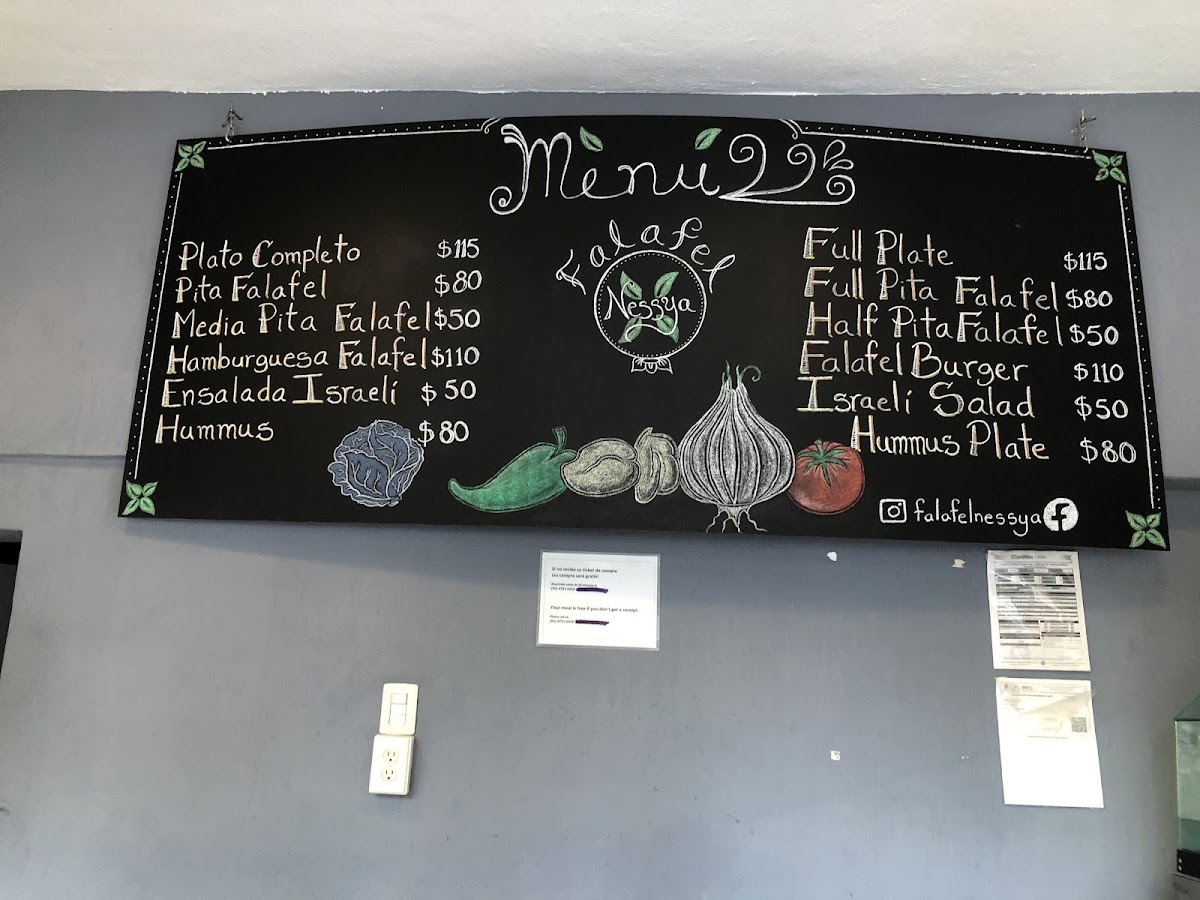 Menú
Falafel
Nessya
Plato Completo $115
Pita Falafel $80
Media Pita Falafel $50
Hamburguesa Falafel $110
Ensalada Israelí $50
Hummus $80
Full Plate $115
Full Pita Falafel $80
Half Pita Falafel $50
Falafel Burger $110
Israelí Salad $50
Hummus Plate $80
falafelnessya
Si no recibe su ticket de compra
¡su compra será gratis!
Your meal is free if you don't get a receipt.